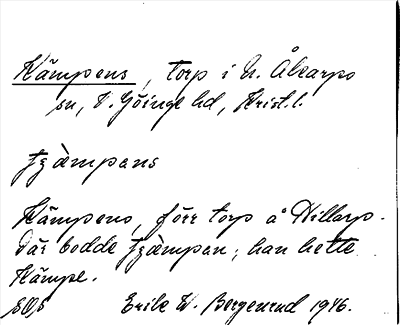 Kämpens, torp i N. Åkarps
sn, V. Göinge hd, Krist. l.
tʒæ̀mpans
Kämpens, förr torp å Hillarp.
Där bodde tʒæ̀mpan; han hette
Kämpe.
Erik W. Bergenrud 1916.